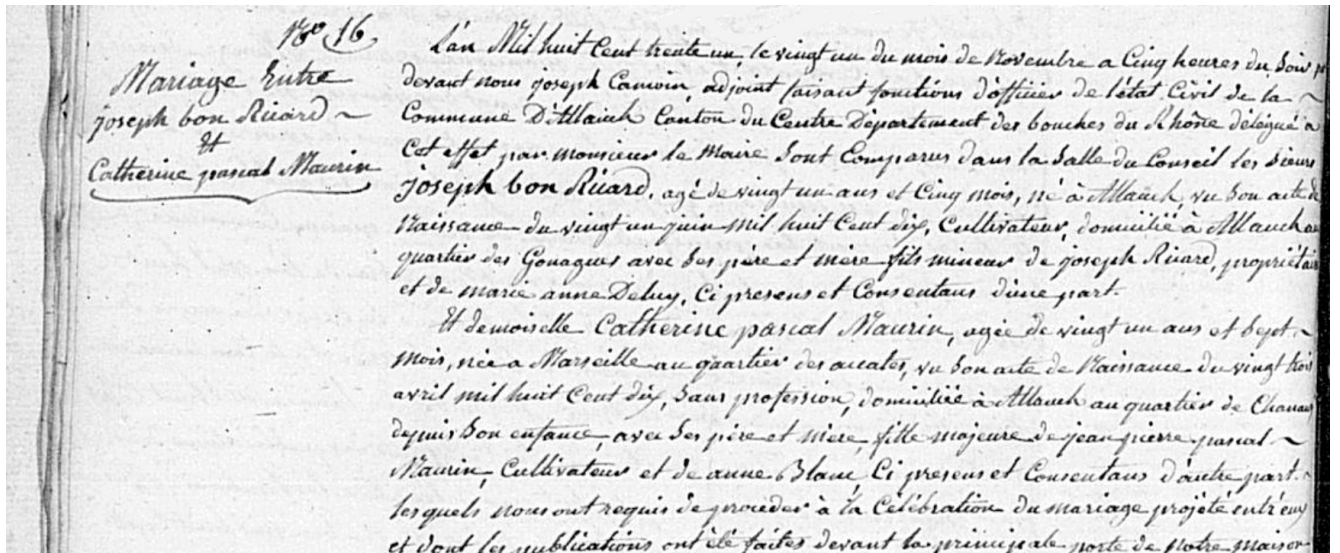 No 16
Mariage Entre
joseph bon Ricard
et
Catherine pascal Maurin
L'an Mil huit Cent trente un, le vingt un du mois de Novembre a Cinq heures du Soir
devant nous joseph Camoin, adjoint faisant fonctions d'officier de l'état Civil de la
Commune D'Allauch Canton du Centre Département des bouches du Rhône délégué a
Cet effet par monsieur le Maire Sont Comparus dans la Salle du Conseil les Sieurs
joseph bon Ricard, agé de vingt un ans et Cinq mois, né à Allauch, vu Son acte de
Naissance du vingt un juin mil huit Cent dix, Cultivateur, domicilié à Allauch au
quartier des Gonagues avec Ses pere et mere fils mineur de joseph Ricard, propriétaire
et de marie anne Deluy, Ci presens et Consentans d'une part.
Et demoiselle Catherine pascal Maurin, agée de vingt un ans et Sept
mois, née a Marseille au quartier des accates, vu Son acte de Naissance du vingt trois
avril mil huit Cent dix, Sans profession, domiciliée à Allauch au quartier de
depuis Son enfance, avec Ses père et mère, fille majeure de jean pierre pascal
Maurin, Cultivateur et de anne Blanc Ci presens et Consentans d'autre part.
lesquels nous ont requis de proceder à la Célébration du mariage projété entr'eux
et dont les publications ont été faites devant la principale porte de notre maison